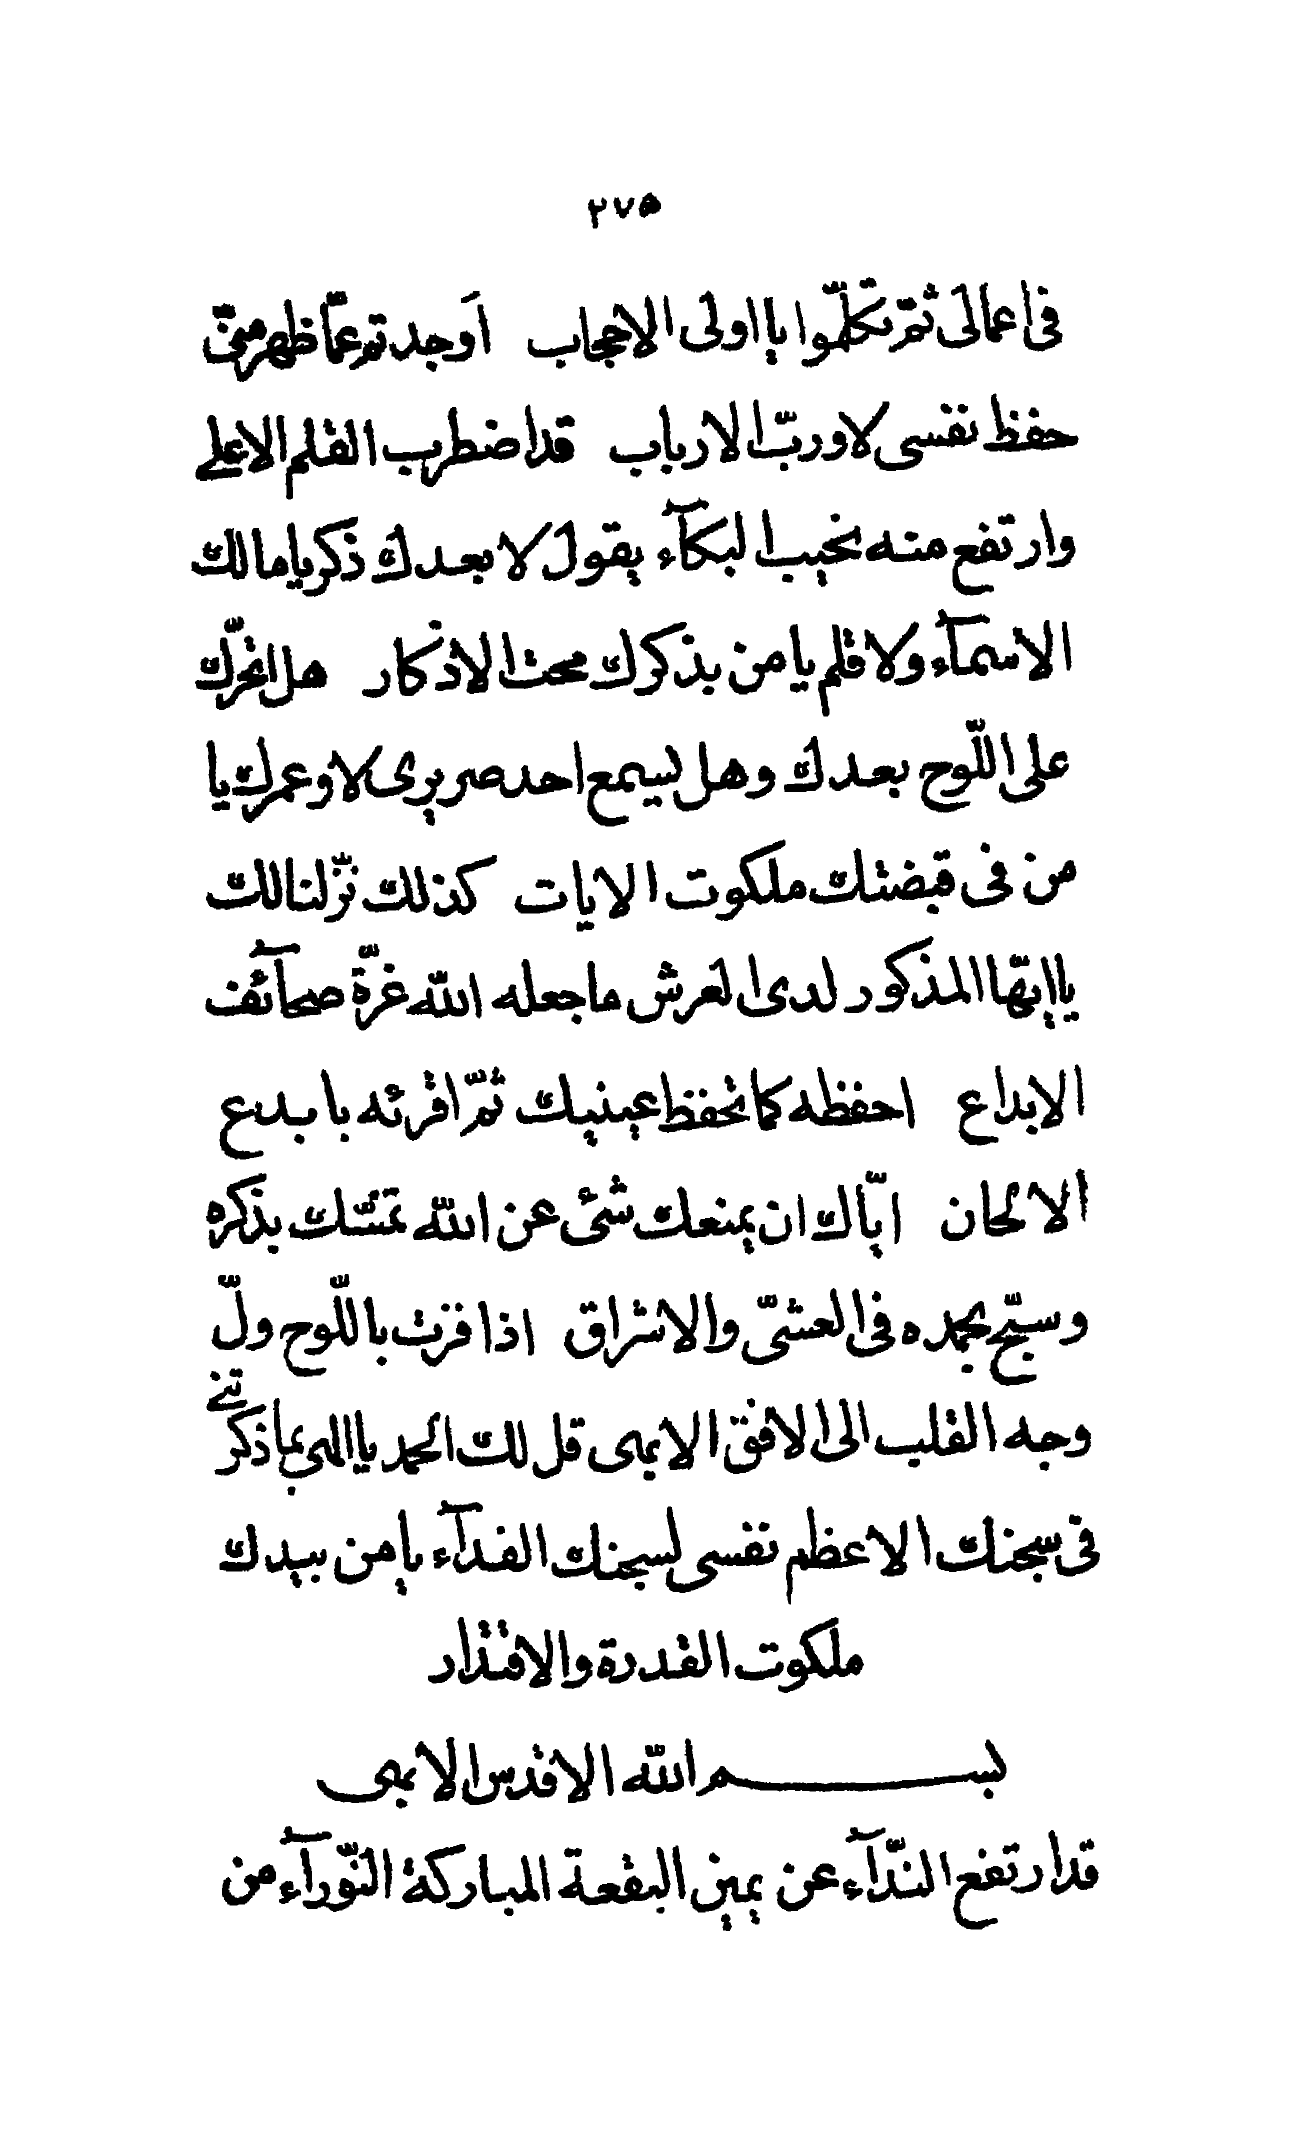 ٢٧٥
فى اعمالى ثمّ تكلّموا يا اولى الاحجاب أوجدتم عمّا ظهر منّى
حفظ نفسى لا وربّ الارباب قد اضطرب القلم الاعلى
وارتفع منه نحيب البكآء يقول لا بعدك ذكر يا مالك
الاسمآء ولا قلم يا من بذكرك محت الاذكار هل اتحرّك
على اللّوح بعدك وهل يسمع احد صريرى لا وعمرك يا
من فى قبضتك ملكوت الايات كذلك نزّلنا لك
يا ايّها المذكور لدى العرش ما جعله اللّه غرّة صحآئف
الابداع احفظه كما تحفظ عينيك ثمّ اقرئه بابدع
الالحان ايّاك ان يمنعك شئ عن اللّه تمسّك بذكره
وسبّح بحمده فى العشىّ والاشراق اذا فزت باللّوح ولّ
وجه القلب الى الافق الابهى قل لك الحمد يا الهى بما ذكرتنى
فى سجنك الاعظم نفسى لسجنك الفدآء يا من بيدك
ملكوت القدرة والاقتدار
بسم اللّه الاقدس الابهى
قد ارتفع النّدآء عن يمين البقعة المباركة النّورآء من